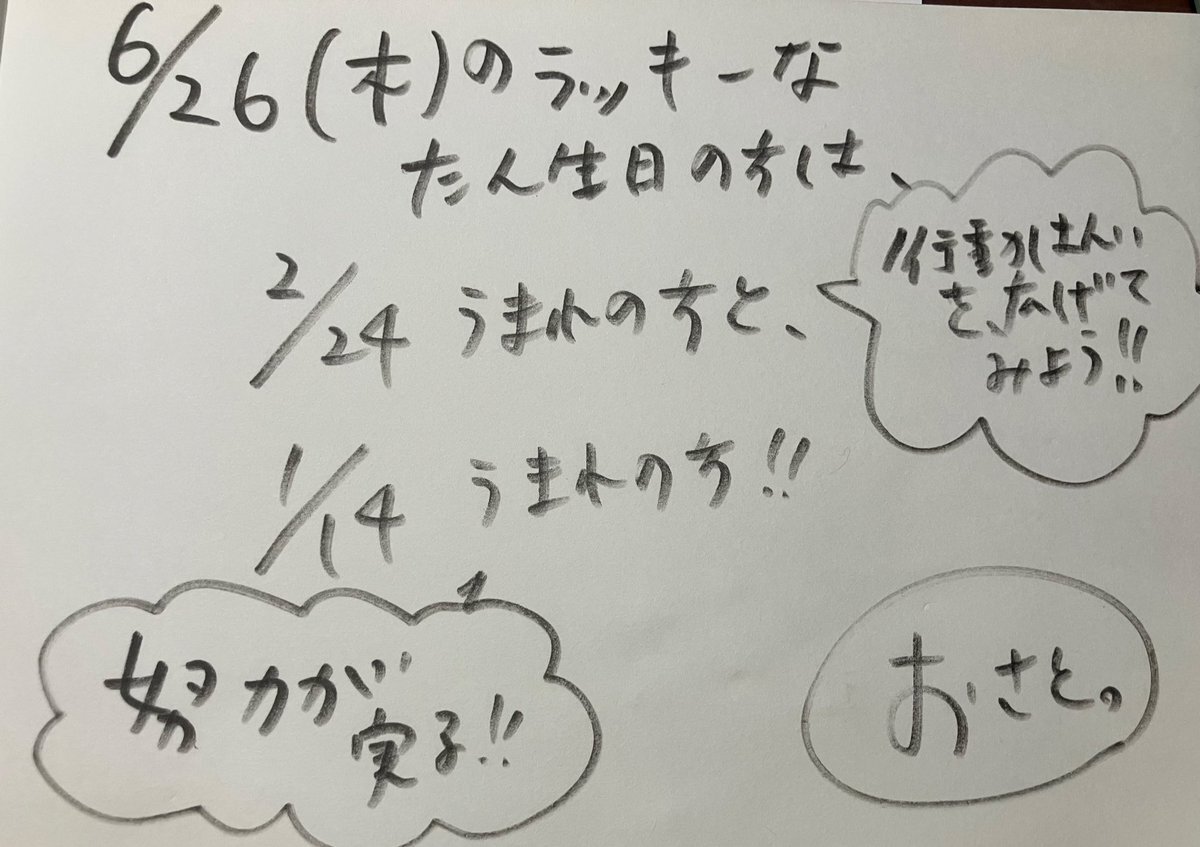 6/26(木)のラッキーな
たん生日の方は、
2/24 うまれの方と、
行動はんい
を、広げて
みよう!!
1/14 うまれの方!!
努力が
実る!!
おさと。